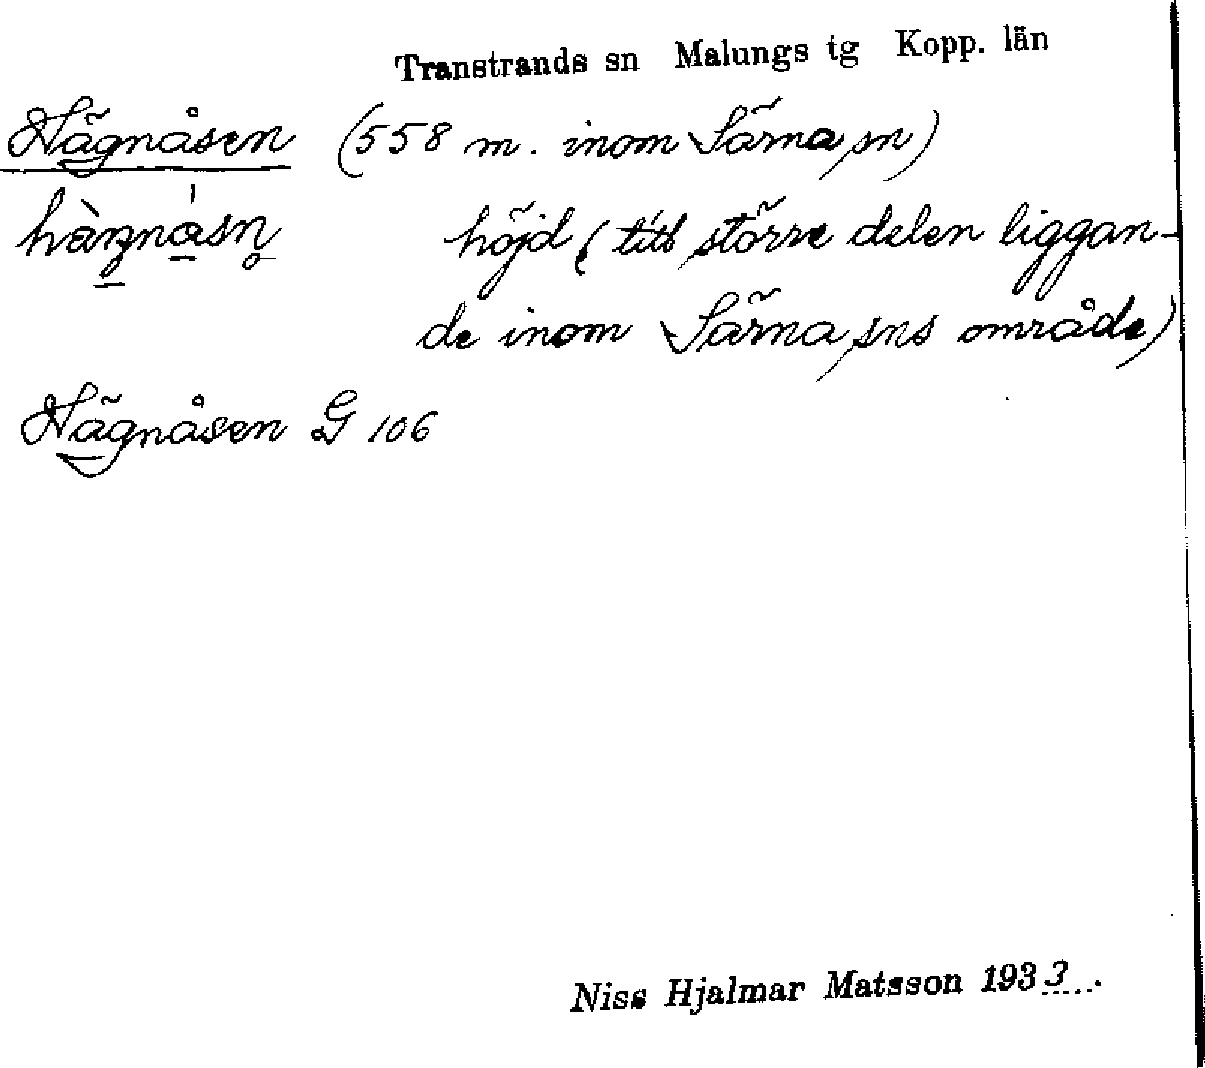 Transtrands sn Malungs tg Kopp. län
Hägnåsen (558 m. inom Särna sn)
höjd (till större delen liggan-
de inom Särna sns område)
Hägnåsen G 106
Niss Hjalmar Matsson 1933